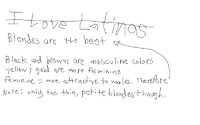 I Love Latinos
Blondes are the best
Black and brown are masculine colors
yellow & gold are more feminine
feminine = more attractive to males. Therefore
Note: only the thin, petite blondes though.